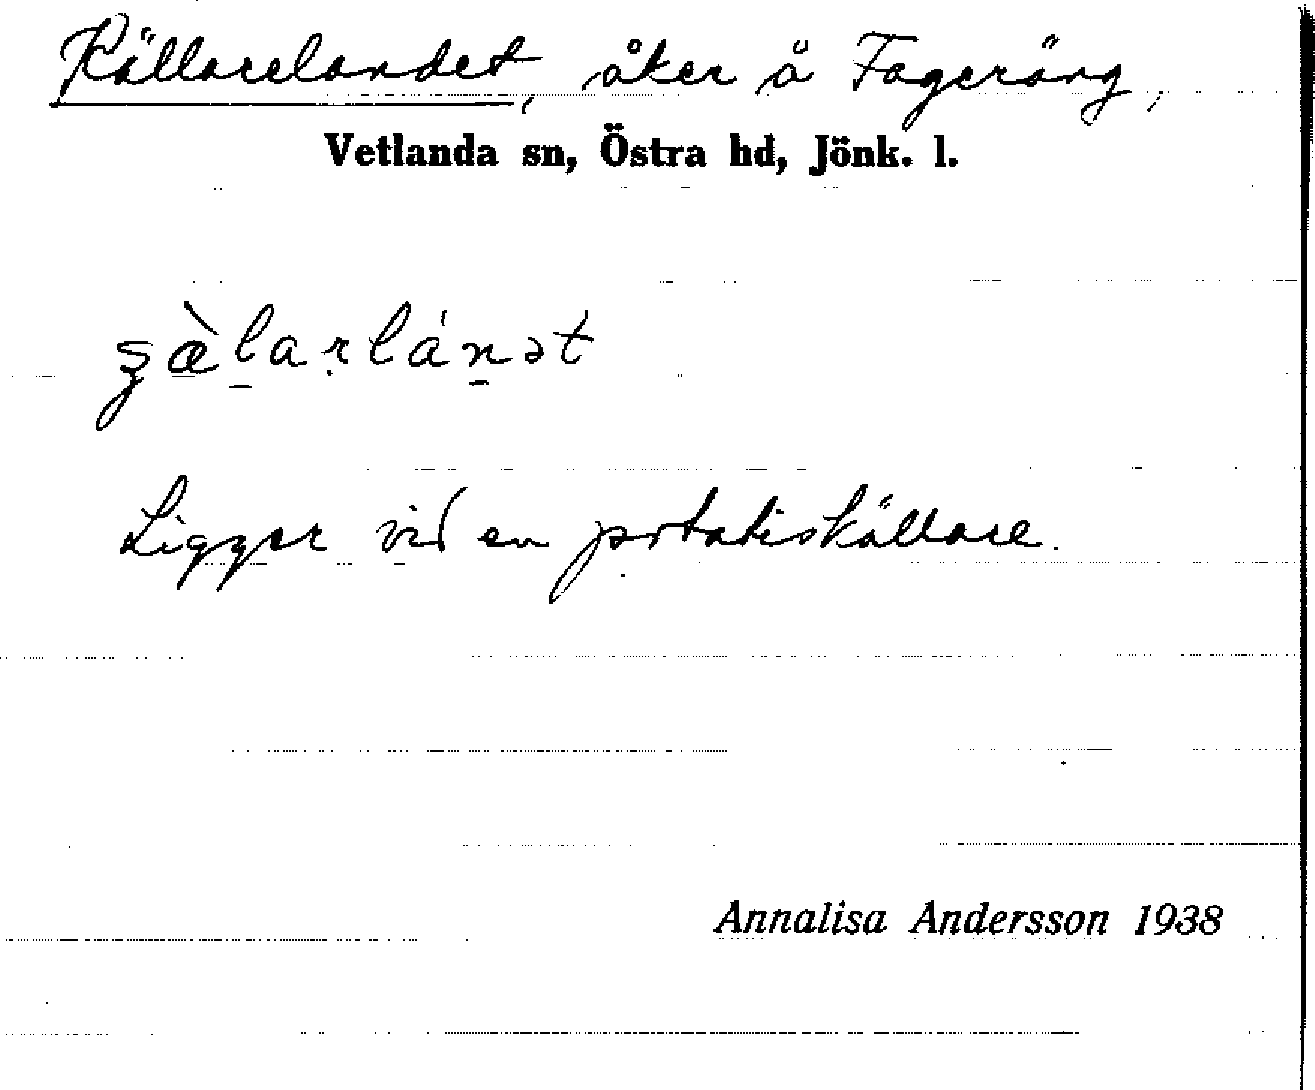 Källarelandet, åker å Fageräng,
Vetlanda sn, Östra hd, Jönk. l.
Ligger vid en potatiskällare.
Annalisa Andersson 1938